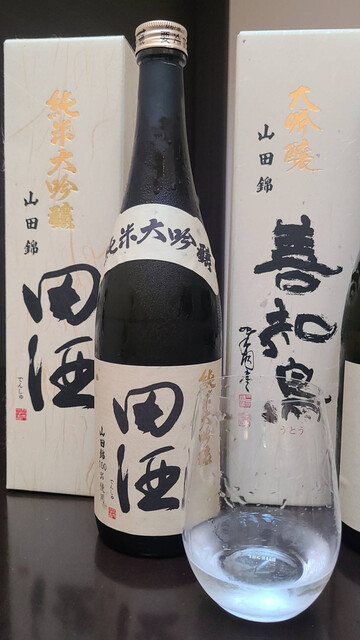 純米大吟醸
山田錦
田酒
でんしゅ
純米大吟醸
純米大吟醸
田酒
でんしゅ
山田錦100%使用
大吟醸
山田錦
善知鳥
うとう